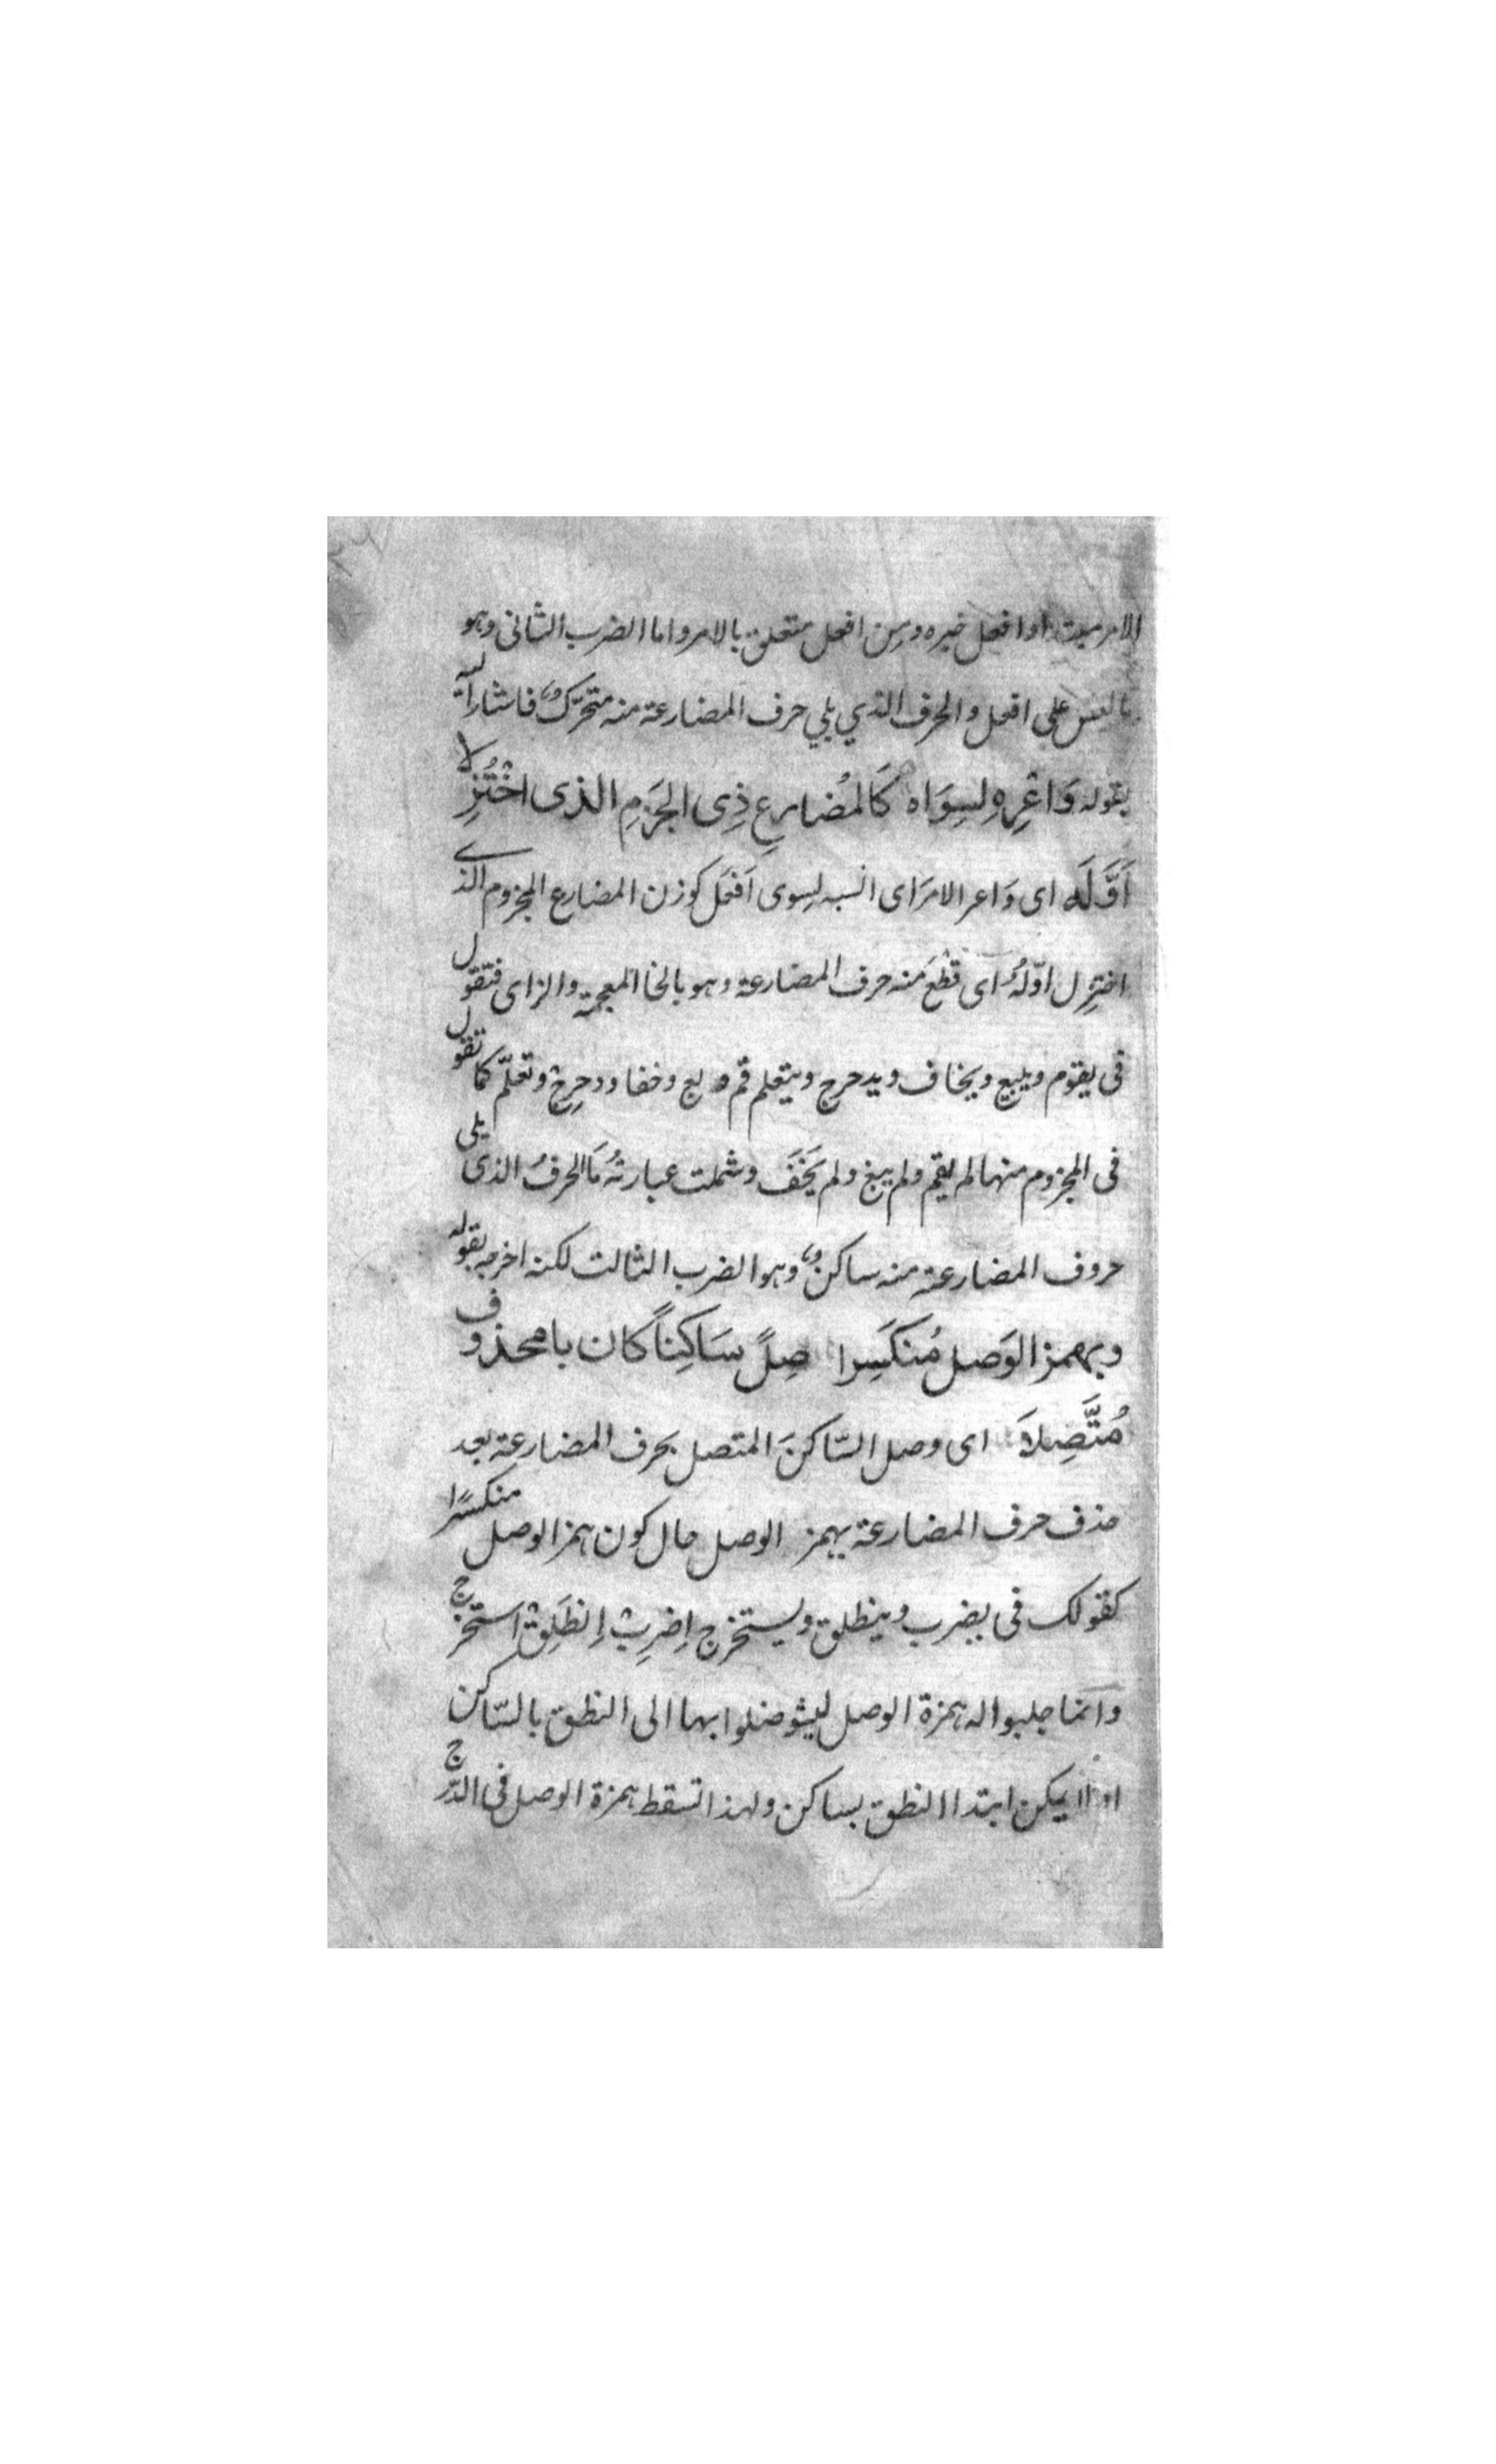 الامر مبتدا وافعل خبره ومن افعل متعلق بالامر واما الضرب الثانى وهو
على افعل والحرف الذي يلي حرف المضارعة منه متحرّك فاشار اليه
بقوله وَاعْزِهِ لِسِوَاه كَالمُضارعِ ذِى الجَزمِ الذى اخْتُزِلا
اَوَّلَه اى وَاعز الامرَ اى انسبه لِسوى اَفعَل كوزن المضارع المجزوم الذى
اختزِل اوّلهُ اى قُطعَ منه حرف المضارعة وهو بالخا المعجمة والزاى فتقول
فى يقوم ويبيع ويخاف ويدحرج ويتعلم قم وبع وخف ودحرِجْ وتعلّم كما تقول
فى المجزوم منها لم يقم ولم يبع ولم يَخَفَ وشملت عبارتهُ مَا الحرفُ الذى يلى
حروف المضارعة منه ساكنٌ وهو الضرب الثالث لكنه اخرجه بقوله
وبهمز الوَصل مُنكَسِرا صِلْ سَاكِناً كان بالمحذوف
مُتَّصِلاَ اى وصل السّاكنَ المتصل بحرف المضارعة بعد
حذف حرف المضارعة بهمز الوصل حال كون همز الوصل منكسرًا
كقولك فى يضرب وينطلق ويستخرج اِضرِبْ اِنطَلِقْ استخرج
وانما جلبوا له همزة الوصل ليتوصلوا بها الى النطق بالسّاكن
اذ لا يمكن ابتدا النطق بساكن ولهذا تسقط همزة الوصل فى الدّرج